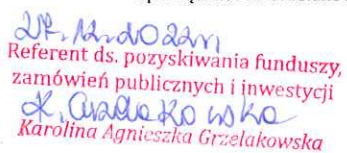 27.12.2022r.
Referent ds. pozyskiwania funduszy,
zamówień publicznych i inwestycji
K. Grzelakowska
Karolina Agnieszka Grzelakowska